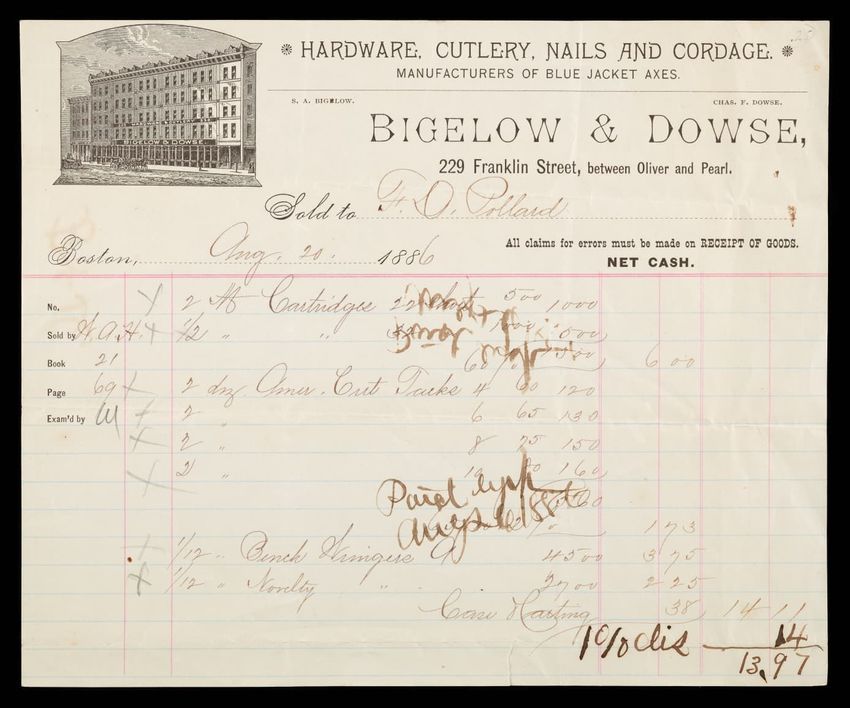 HARDWARE, CUTLERY, NAILS AND CORDAGE.
MANUFACTURERS OF BLUE JACKET AXES.
S. A. BIGELOW. CHAS. F. DOWSE.
BIGELOW & DOWSE
BIGELOW & DOWSE,
229 Franklin Street, between Oliver and Pearl.
Sold to F. O. Pollard
All claims for errors must be made on RECEIPT OF GOODS.
Boston, Aug. 20. 1886
NET CASH.
No. 2 M Cartridges 22 500 1000
Sold by W.A.H. 1/2 " " 500
Book 21 60 6 00
Page 69 2 dz Amer. Cut Tacks 4 60 120
Exam'd by 2 6 65 130
2 " 8 75 150
2 " 160
Paid
1 73
1/12 " Bench Wringers 4500 3 75
1/12 " Novelty " 2700 2 25
38 14 11
1% dis 14
13.97